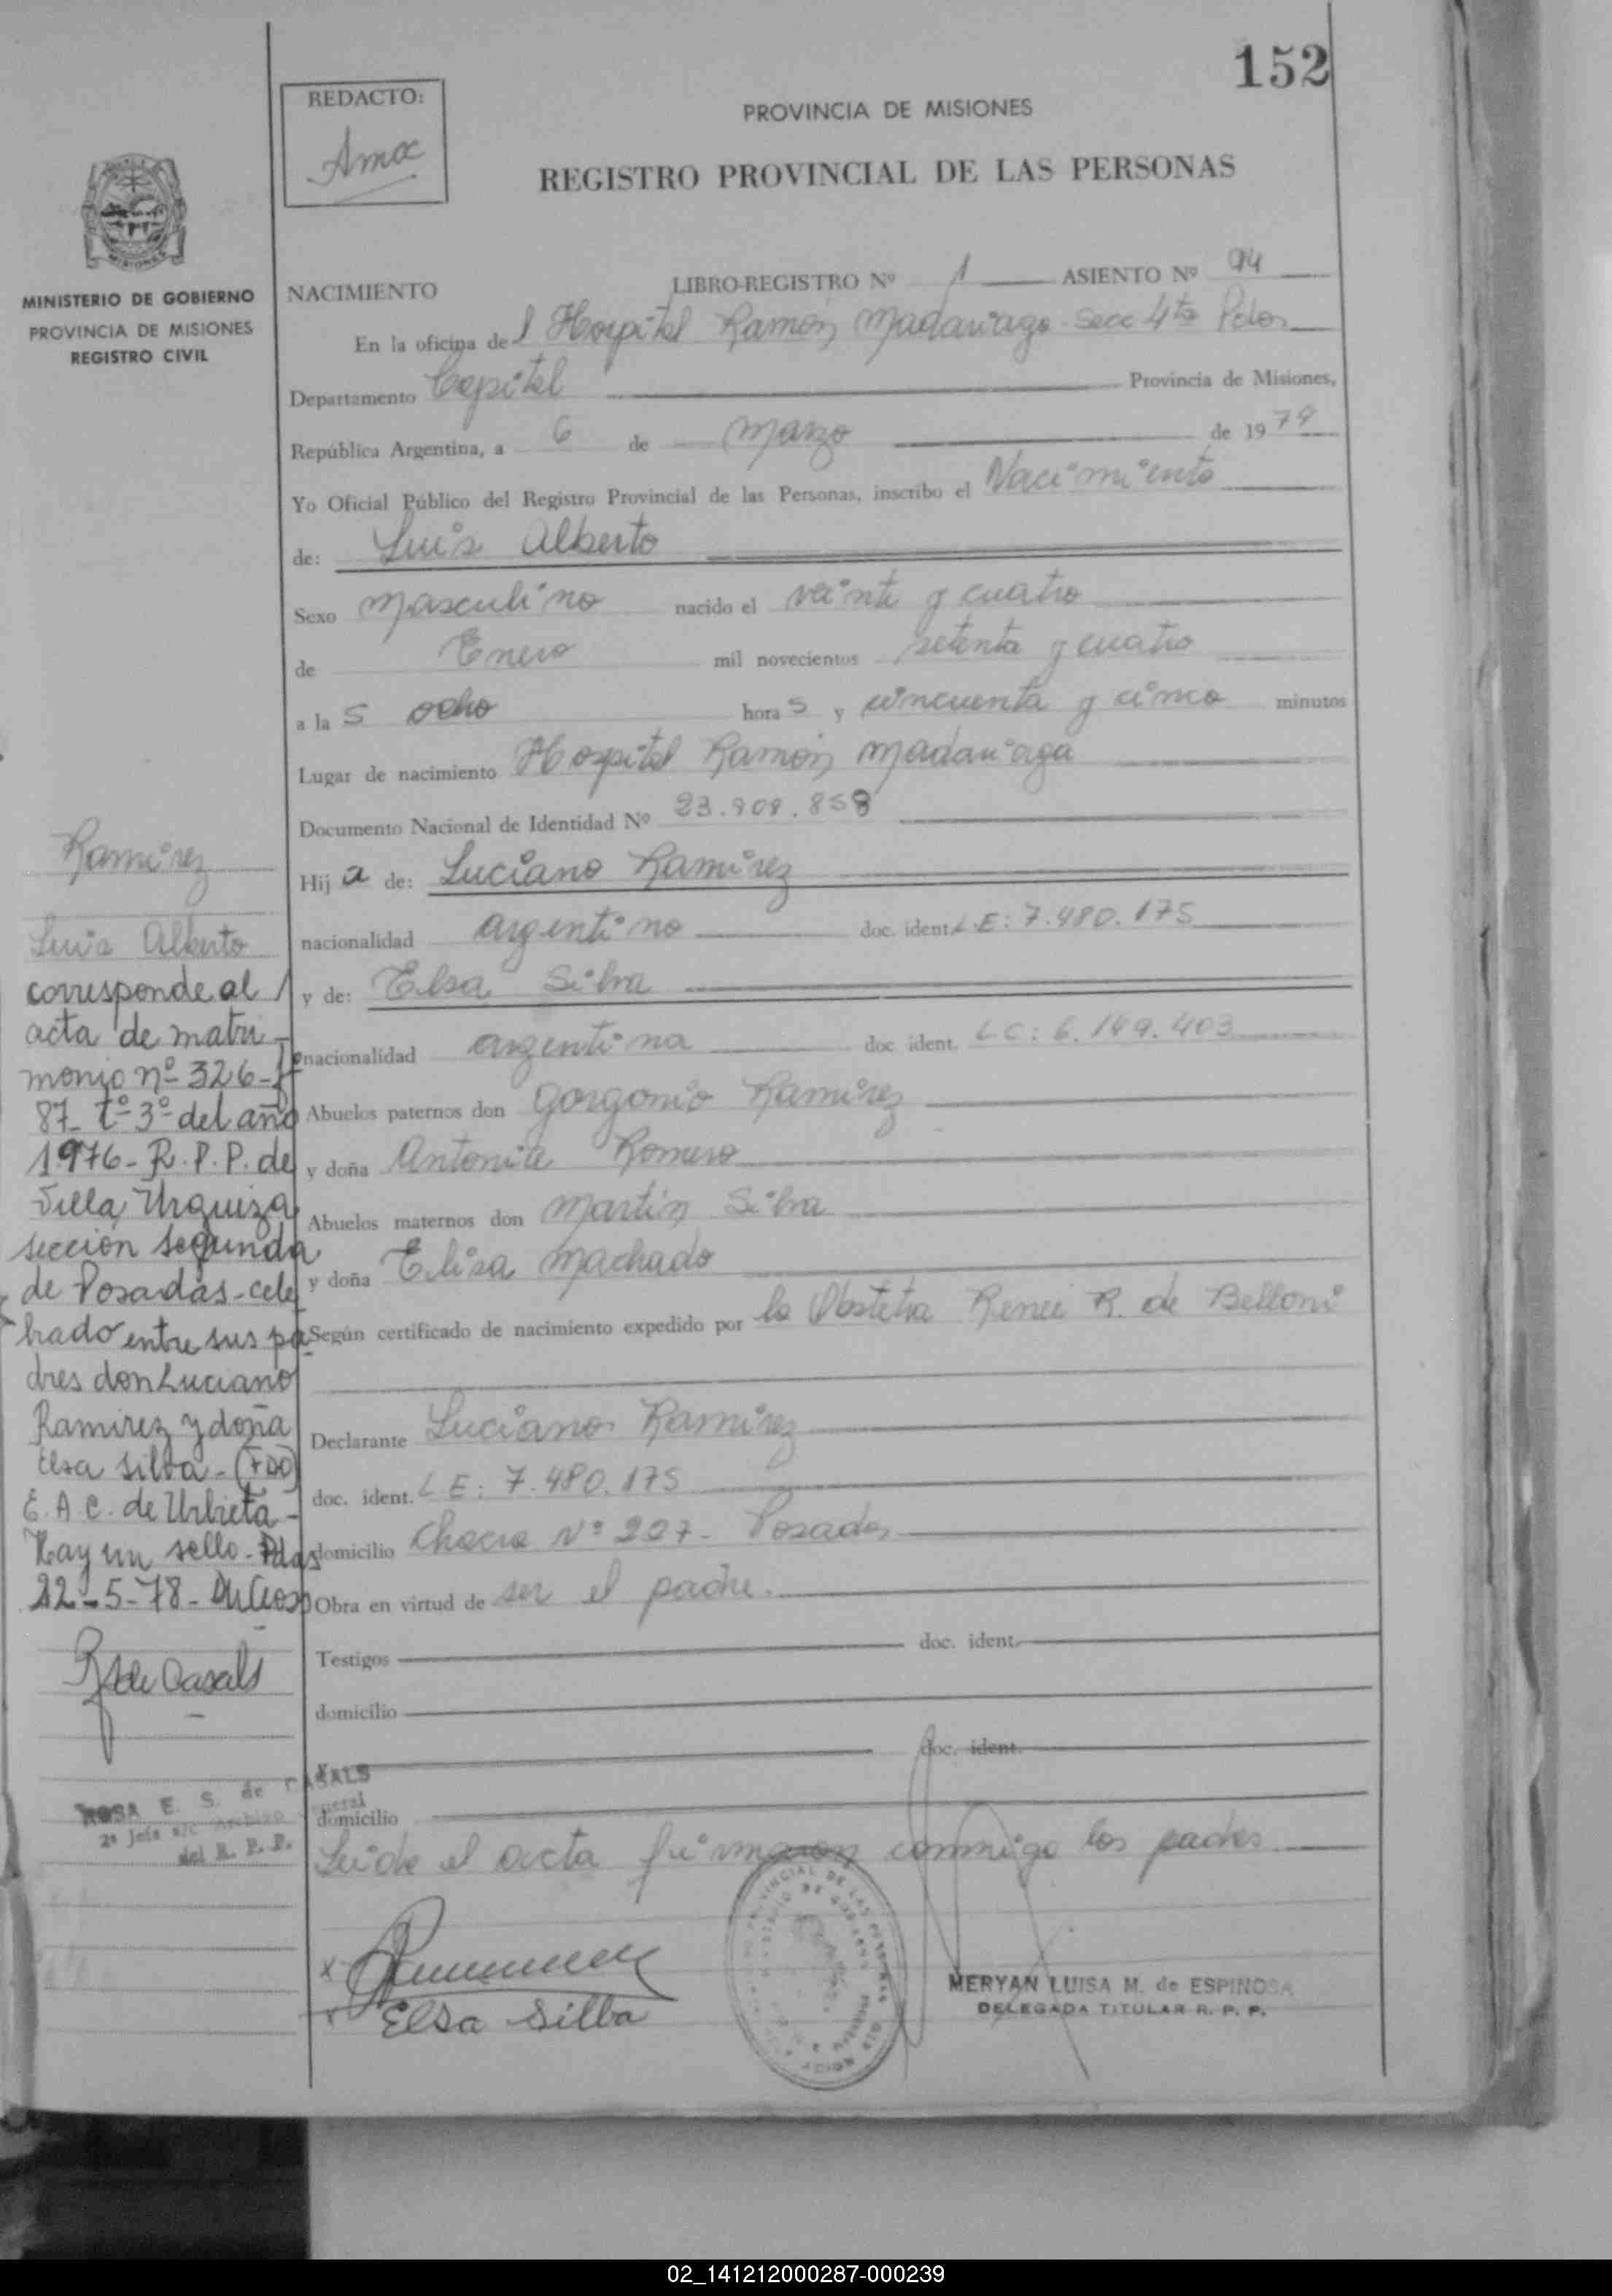 152
REDACTO:
PROVINCIA DE MISIONES
REGISTRO PROVINCIAL DE LAS PERSONAS
MINISTERIO DE GOBIERNO
PROVINCIA DE MISIONES
REGISTRO CIVIL
NACIMIENTO LIBRO-REGISTRO Nº 1 ASIENTO Nº 94
En la oficina de l Hospital Ramón Madariaga - Secc 4ta Pdas
Departamento Capital Provincia de Misiones,
República Argentina, a 6 de Marzo de 19
Yo Oficial Público del Registro Provincial de las Personas, inscribo el Nacimiento
de: Luis Alberto
Sexo Masculino nacido el veinte y cuatro
de Enero mil novecientos setenta y cuatro
a la s ocho hora s y cincuenta y cinco minutos
Lugar de nacimiento Hospital Ramón Madariaga
Documento Nacional de Identidad Nº
Hij a de: Luciano Ramirez
nacionalidad argentino doc. ident. L.E: 7.480.175
y de: Elsa Silva
nacionalidad argentina doc. ident. L.C: 6.149.403
Abuelos paternos don Gorgonio Ramirez
y doña Antonia Romero
Abuelos maternos don Martin Silva
y doña Elisa Machado
Según certificado de nacimiento expedido por la Obstetra Renee R. de Belloni
Declarante Luciano Ramirez
doc. ident. L E: 7.480.175
domicilio Chacra Nº 227 - Posadas
Obra en virtud de ser el padre.
Testigos doc. ident.
domicilio
y doc. ident.
domicilio
Leida el acta firmaron conmigo los padres
Elsa Silba
MERYAN LUISA M. de ESPINOSA
DELEGADA TITULAR R. P. P.
Ramirez
Luis Alberto
corresponde al
acta de matri-
monio nº 326-Fº
87- tº 3º del año
1976- R.P.P. de
Villa Urquiza
sección segunda
de Posadas-cele
brado entre sus pa
dres don Luciano
Ramirez y doña
Elsa Silva-(FDO)
E. A C. de Urbieta-
Hay un sello-Pdas
22-5-78-
R de Casals
ROSA E. S. de CASALS
2ª Jefa a/c Archivo General
del R. P. P.
02_141212000287-000239